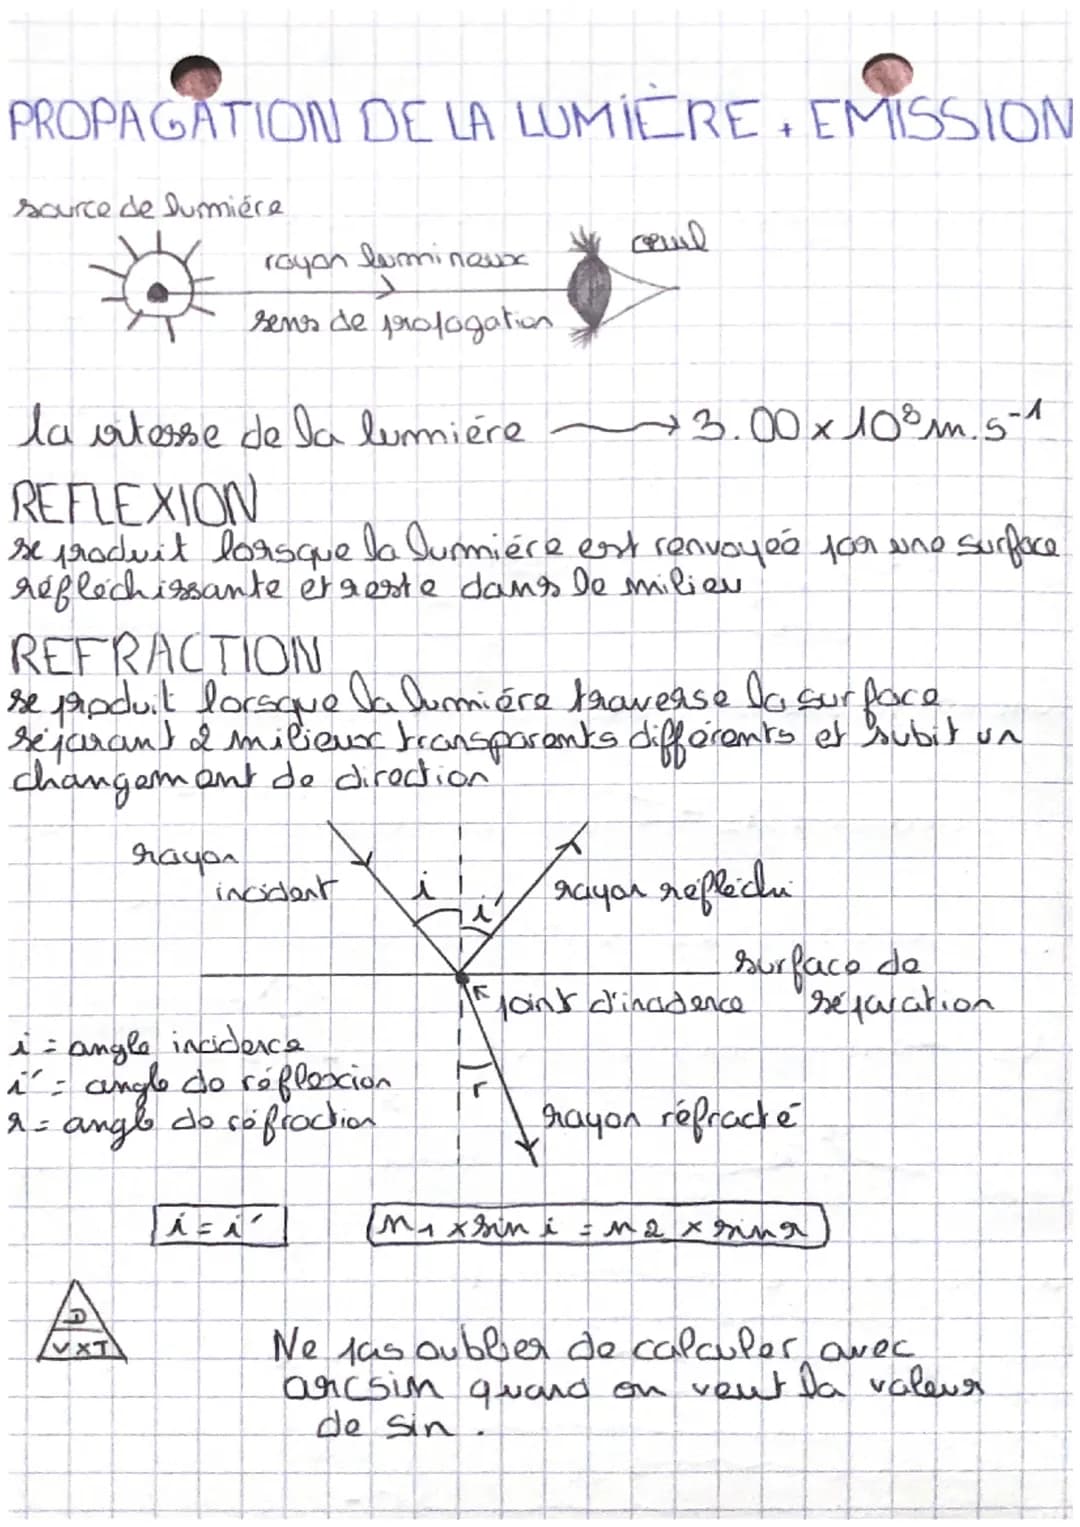 PROPAGATION DE LA LUMIÈRE + EMISSION
source de lumiére
rayon lumineux
oeuil
sens de propagation
la vitesse de la lumiére → 3.00 x 10⁸ m.s⁻¹
REFLEXION
se produit lorsque la lumiére est renvoyeé par une surface
réflechissante et reste dans le milieu
REFRACTION
se produit lorsque la lumiére traverse la surface
séparant 2 milieux transparents différents et subit un
changement de direction
rayon
incident
i
i'
rayon réfléchi
surface de
séparation
point d'incidence
i = angle incidence
i' = angle de réflexion
r = angle de réfraction
r
rayon réfracté
i = i'
n1 x sin i = n2 x sin r
D
V X T
Ne pas oublier de calculer avec
arcsin quand on veut la valeur
de sin.